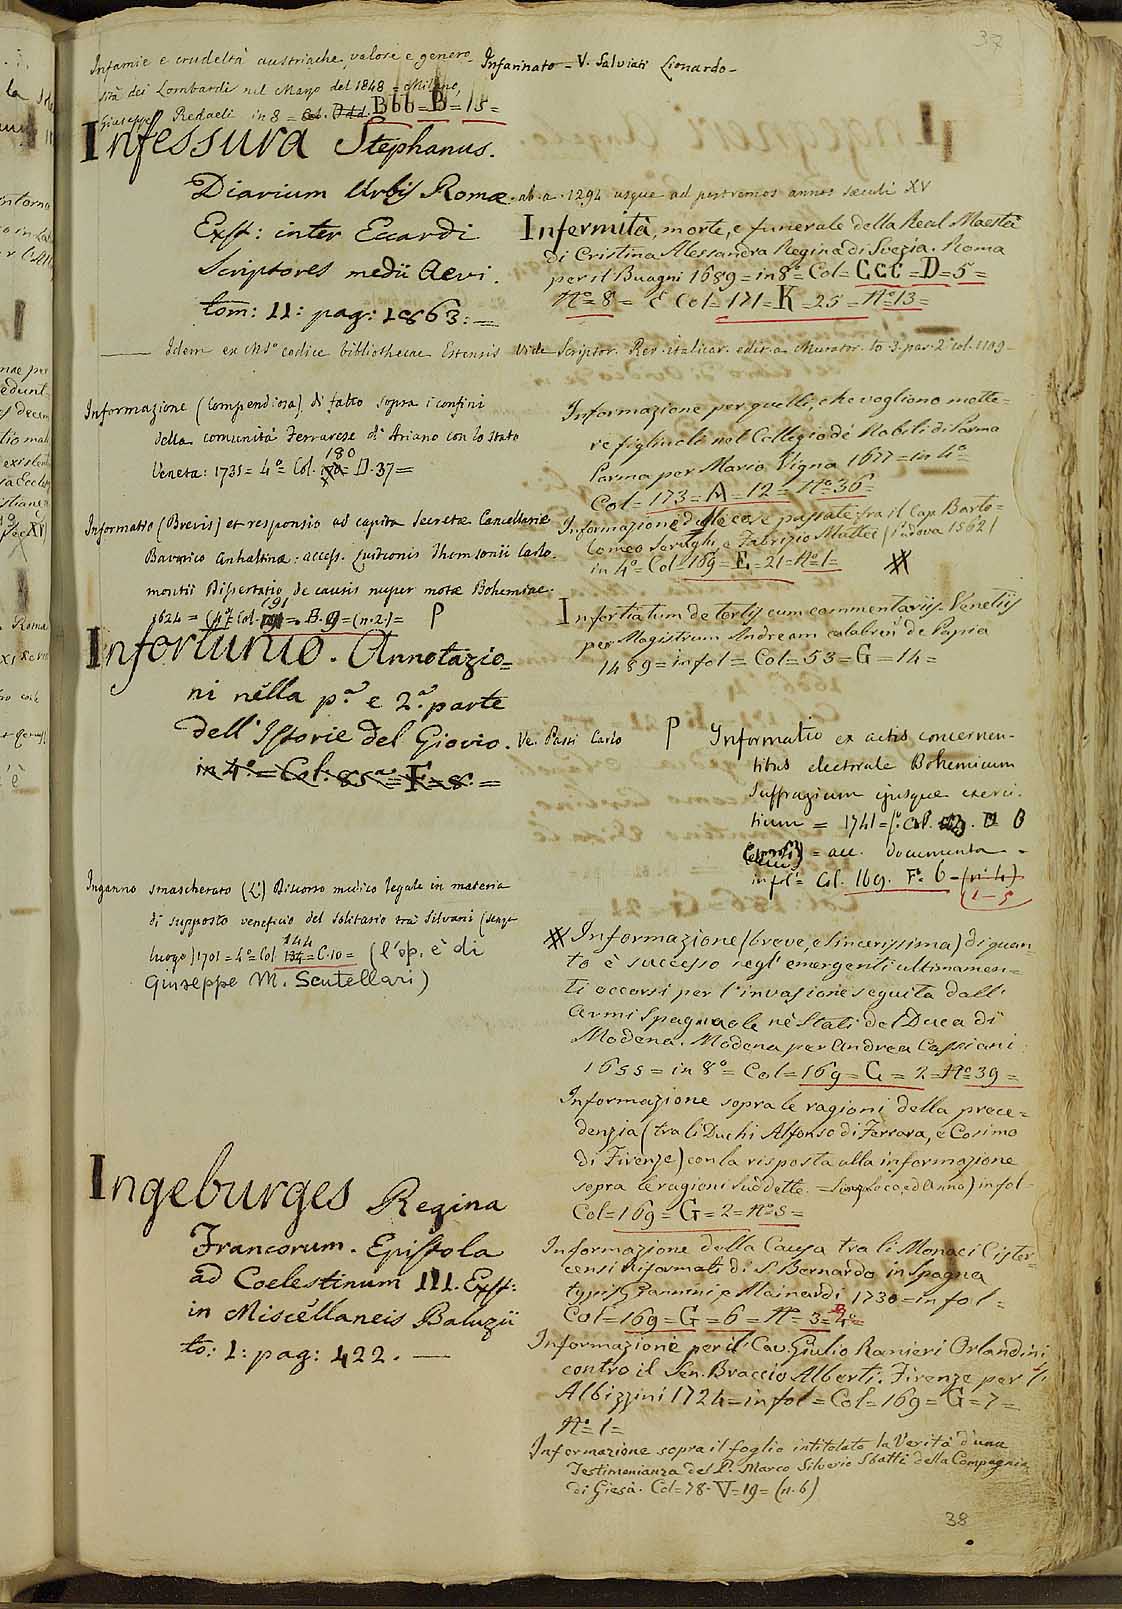 37
Infamie e crudeltà austriache, valore e genero-
sità dei Lombardi nel Marzo del 1848 = Milano,
Giuseppe Redaeli in 8 = Col. Ddd. Bbb = B = 15 =
Infessura Stephanus.
Diarium Urbis Romæ. ab. a. 1294 usque ad postremos annos sæculi XV
Exst: inter Eccardi
Scriptores medii Aevi.
tom: 11: pag: 1863: —
—— Idem ex MSo codice bibliothecae Estensis Vide Scriptor. Rer. italicar. edit. a Murator. to 3. par. 2a col. 1109 —
Informazione (Compendiosa) di fatto sopra i confini
della comunità Ferrarese di Ariano con lo stato
Veneto: 1735 = 4o = Col. 180 = D. 37 =
Informatio (Brevis) et responsio ad capita secretæ Cancellariæ
Bavarico Anhaltinæ: access. Luitconis Themsonii Carlo-
montii Dissertatio de causis nuper motæ Bohemiae.
1624 = (4o = Col. 191 = B. 9 = (n. 2.) = P
Infortunio. Annotazio=
ni nella pa. e 2a. parte
dell' Istorie del Giovio. Ve. Passi Carlo
in 4o = Col. 85a = F = 8. =
Inganno smascherato (L') Discorso medico legale in materia
di supposto veneficio del solitario tra' Silvani (senza
luogo) 1701 = 4o = Col 144 134 = C. 10 = (l'op. è di
Giuseppe M. Scutellari)
Ingeburges Regina
Francorum. Epistola
ad Coelestinum III. Exst:
in Miscellaneis Baluzii
to: 1: pag: 422. —
Infarinato = V. Salviati Lionardo -
Infermità, morte, e funerale della Real Maestà
di Cristina Alessandra Regina di Svezia. Roma
per il Buagni 1689 = in 8o = Col = CCC = D = 5 =
No = 8 = E Col = 171 = K = 25 = No 13 =
Informazione per quelli, che vogliono mette=
re figliuoli nel Collegio de' Nobili di Parma
Parma per Mario Vigna 1677 = in 4o =
Col = 173 = A = 12 = No 36 =
Informazione delle cose passate fra il Cap. Barto=
lomeo Seraghi, e Fabrizio Muttei (Padova 1562)
in 4o = Col = 169 = E = 21 = No 1 = #
Infortiatum de tortis cum commentariis. Venetiis
per Magistrum Andream calabren' de Papia
1489 = infol = Col = 53 = G = 14 =
P Informatio ex actis concernen-
tibus electorale Bohemicum
Suffragium ejusque exerci-
tium = 1741 = f. Col.
= acc. documenta -
in fol = Col. 169. Fo. 6 - (n. 4)
1-5
# Informazione (breve, e sincerissima) di quan=
to è successo negl' emergenti ultimamen=
ti occorsi per l'invasione seguita dall'
Armi Spagnuole ne' Stati del Duca di
Modena. Modena per Andrea Cassiani
1655 = in 8o = Col = 169 = G = 2 = No 39 =
Informazione sopra le ragioni della prece=
denzia (tra li Duchi Alfonso di Ferrara, e Cosimo
di Firenze) con la risposta alla informazione
sopra le ragioni suddette. = Senza loco, ed Anno) in fol =
Col = 169 = G = 2 = No 5 =
Informazione della Causa tra li Monaci Cister-
censi Riformati di S. Bernardo in Spagna
typis Giannini e Mainardi 1730 = infol =
Col = 169 = G = 6 = No 3 = 4o =
Informazione per il Cav. Giulio Ranieri Orlandini
contro il Sen. Braccio Alberti. Firenze per l'
Albizzini 1724 = infol = Col = 169 = G = 7 =
No = 1 =
Informazione sopra il foglio intitolato la Verità d'una
Testimonianza del P. Marco Silverio Sbatti della Compagnia
di Giesà. Col = 78. V = 19 = (n. 6)
38